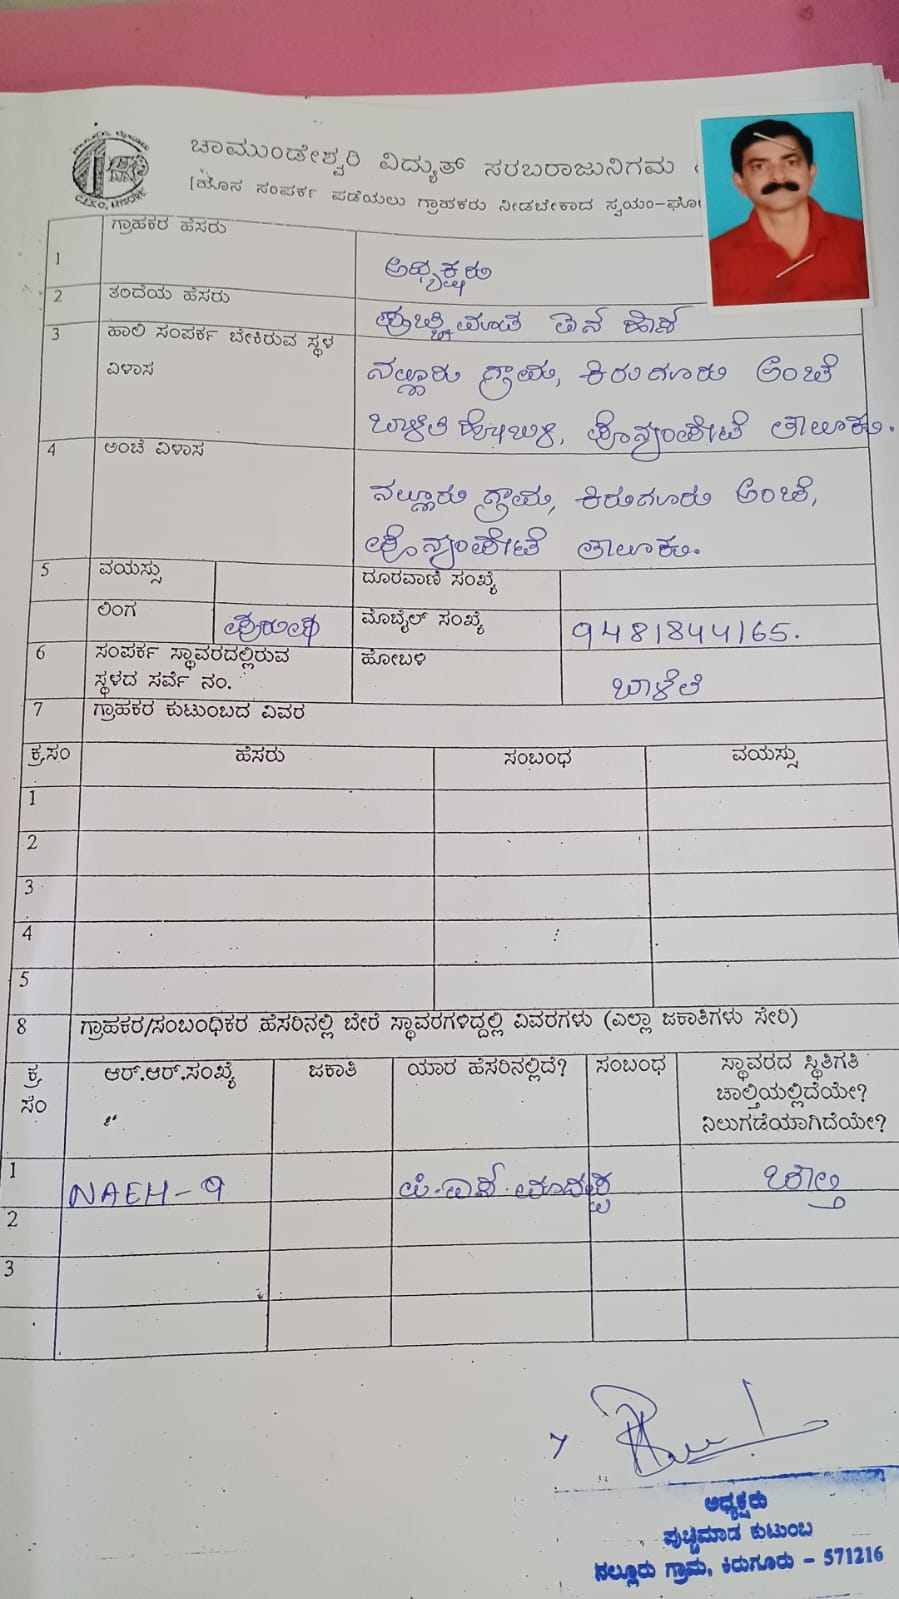 ಚಾಮುಂಡೇಶ್ವರಿ ವಿದ್ಯುತ್ ಸರಬರಾಜುನಿಗಮ
[ಹೊಸ ಸಂಪರ್ಕ ಪಡೆಯಲು ಗ್ರಾಹಕರು ನೀಡಬೇಕಾದ ಸ್ವಯಂ-ಘೋ
1 ಗ್ರಾಹಕರ ಹೆಸರು ಅಧ್ಯಕ್ಷರು
2 ತಂದೆಯ ಹೆಸರು ಪುಚ್ಚಿಮಾಡ ಐನ್ ಮನೆ
3 ಹಾಲಿ ಸಂಪರ್ಕ ಬೇಕಿರುವ ಸ್ಥಳ ನಲ್ಲೂರು ಗ್ರಾಮ, ಕಿರುಗೂರು ಅಂಚೆ
ವಿಳಾಸ ಬಾಳೆಲೆ ಹೋಬಳಿ, ಪೊನ್ನಂಪೇಟೆ ತಾಲೂಕು.
4 ಅಂಚೆ ವಿಳಾಸ ನಲ್ಲೂರು ಗ್ರಾಮ, ಕಿರುಗೂರು ಅಂಚೆ,
ಪೊನ್ನಂಪೇಟೆ ತಾಲೂಕು.
5 ವಯಸ್ಸು ದೂರವಾಣಿ ಸಂಖ್ಯೆ
ಲಿಂಗ ಪುರುಷ ಮೊಬೈಲ್ ಸಂಖ್ಯೆ 9481844165.
6 ಸಂಪರ್ಕ ಸ್ಥಾವರದಲ್ಲಿರುವ ಹೋಬಳಿ ಬಾಳೆಲೆ
ಸ್ಥಳದ ಸರ್ವೆ ನಂ.
7 ಗ್ರಾಹಕರ ಕುಟುಂಬದ ವಿವರ
ಕ್ರ.ಸಂ ಹೆಸರು ಸಂಬಂಧ ವಯಸ್ಸು
1
2
3
4
5
8 ಗ್ರಾಹಕರ/ಸಂಬಂಧಿಕರ ಹೆಸರಿನಲ್ಲಿ ಬೇರೆ ಸ್ಥಾವರಗಳಿದ್ದಲ್ಲಿ ವಿವರಗಳು (ಎಲ್ಲಾ ಜಕಾತಿಗಳು ಸೇರಿ)
ಕ್ರ ಆರ್.ಆರ್.ಸಂಖ್ಯೆ ಜಕಾತಿ ಯಾರ ಹೆಸರಿನಲ್ಲಿದೆ? ಸಂಬಂಧ ಸ್ಥಾವರದ ಸ್ಥಿತಿಗತಿ
ಸಂ ಚಾಲ್ತಿಯಲ್ಲಿದೆಯೇ?
ನಿಲುಗಡೆಯಾಗಿದೆಯೇ?
1 NAEH-9 ಪಿ.ಎಸ್.ಮಾದಪ್ಪ ಚಾಲ್ತಿ
2
3
ಅಧ್ಯಕ್ಷರು
ಪುಚ್ಚಿಮಾಡ ಕುಟುಂಬ
ನಲ್ಲೂರು ಗ್ರಾಮ, ಕಿರುಗೂರು - 571216